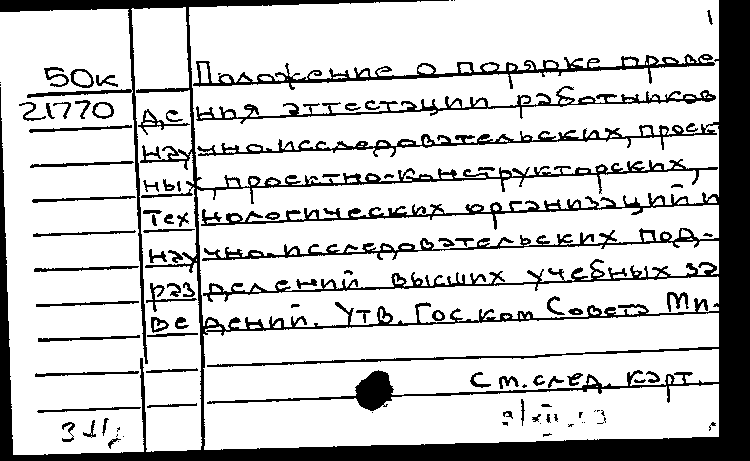 50к
21770
Положение о порядке прове-
дения аттестации работников
научно-исследовательских, проект
ных, проектно-конструкторских,
технологических организаций и
научно-исследовательских под-
разделений высших учебных за
ведений. Утв. Гос. ком Совета Ми-
См. след. карт.